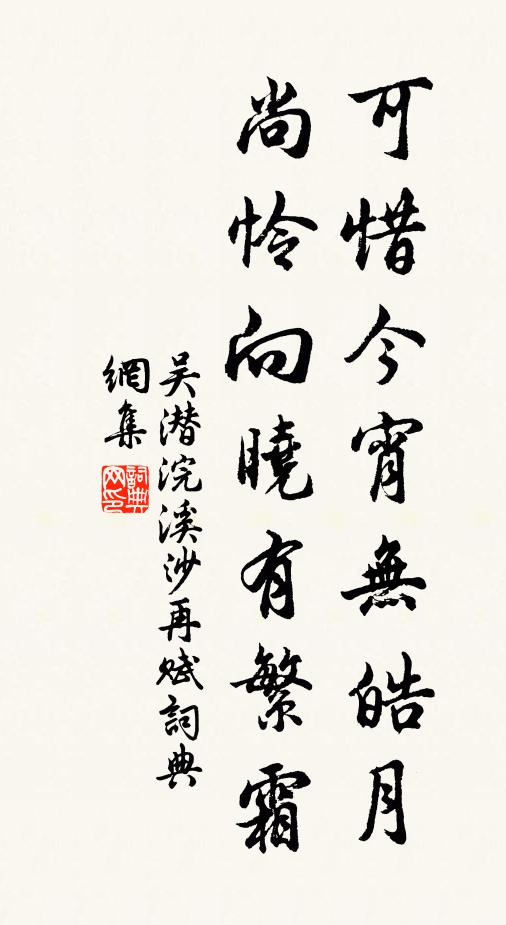 可惜今宵無皓月
尚怜向曉有繁霜
吴潜浣溪沙再赋詞典
網集